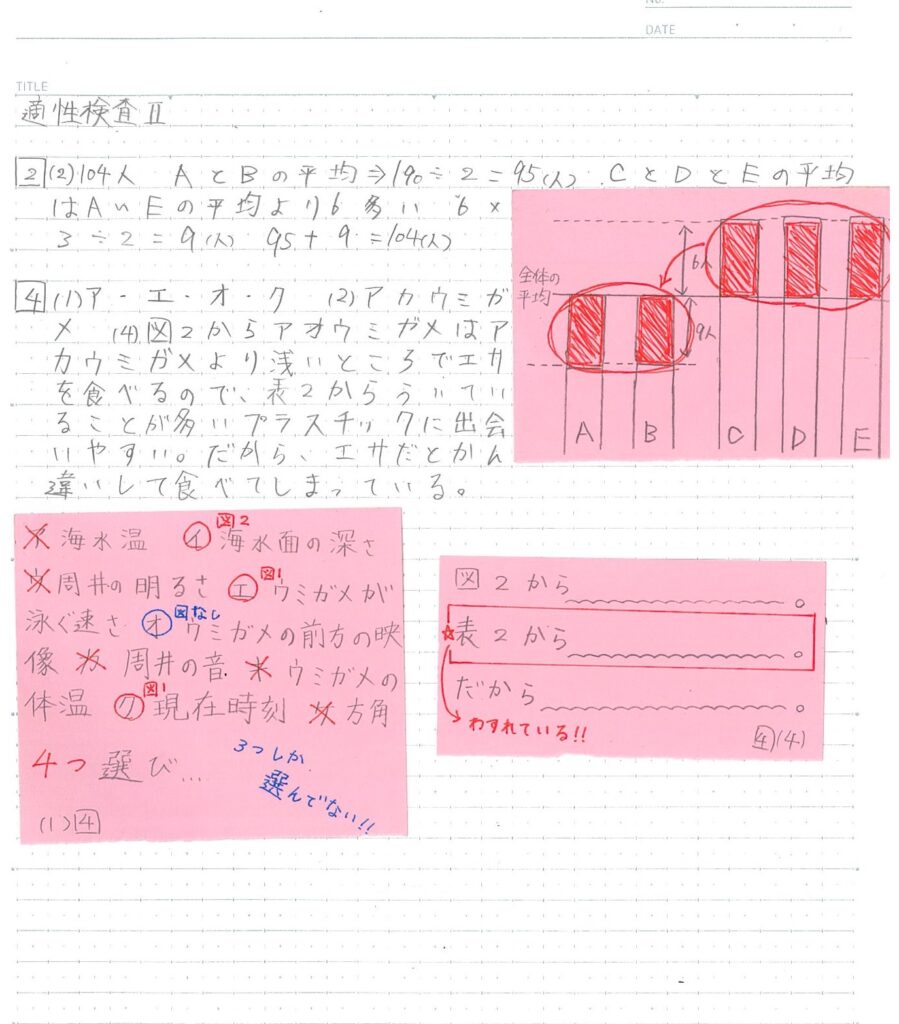 No.
DATE
TITLE
適性検査Ⅱ
2 (2)104人 AとBの平均⇒190÷2=95(人) CとDとEの平均
はA〜Eの平均より6多い 6×
3÷2=9(人) 95+9=104(人)
全体の
平均
6人
9人
A B C D E
4 (1)ア・エ・オ・ク (2)アカウミガ
メ (4)図2からアオウミガメはア
カウミガメより浅いところでエサ
を食べるので、表2からういてい
ることが多いプラスチックに出会
いやすい。だから、エサだとかん
違いして食べてしまっている。
図2
ア 海水温 イ 海水面の深さ
図1
ウ 周井の明るさ エ ウミガメが
図なし
泳ぐ速さ オ ウミガメの前方の映
像 カ 周井の音 キ ウミガメの
図1
体温 ク 現在時刻 ケ 方角
4つ選び...
3つしか
選んでない!!
(1)4
図2から 。
☆表2から 。
だから 。
わすれている!!
4(4)